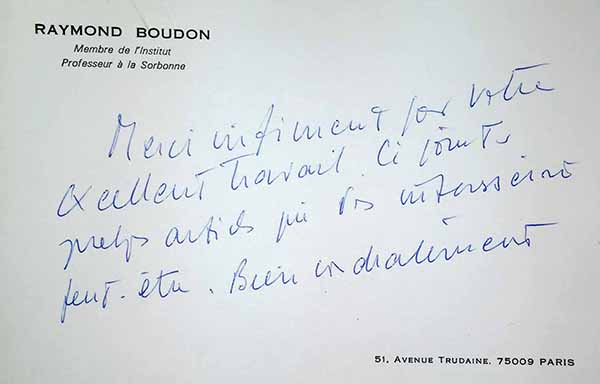 RAYMOND BOUDON
Membre de l'Institut
Professeur à la Sorbonne
Merci infiniment pour votre
excellent travail. Ci joints
quelqs articles qui vos intéresseront
peut-être. Bien cordialement
51, AVENUE TRUDAINE, 75009 PARIS